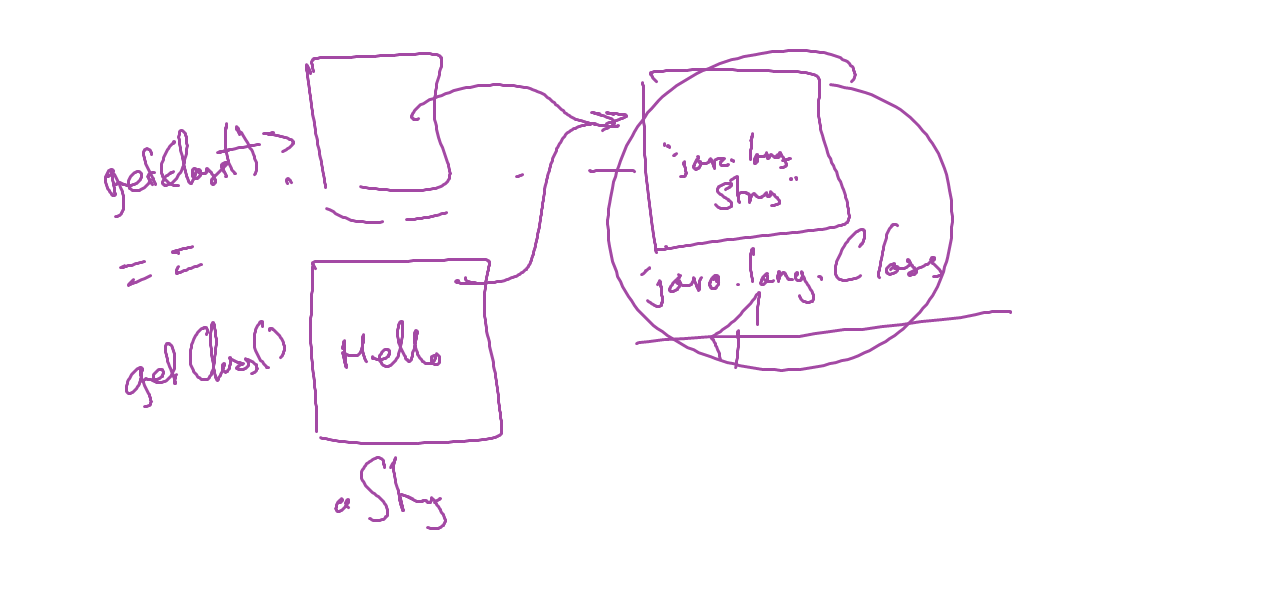 getClass()?
==
getClass()
Hello
a String
"java.lang.
String"
java.lang.Class